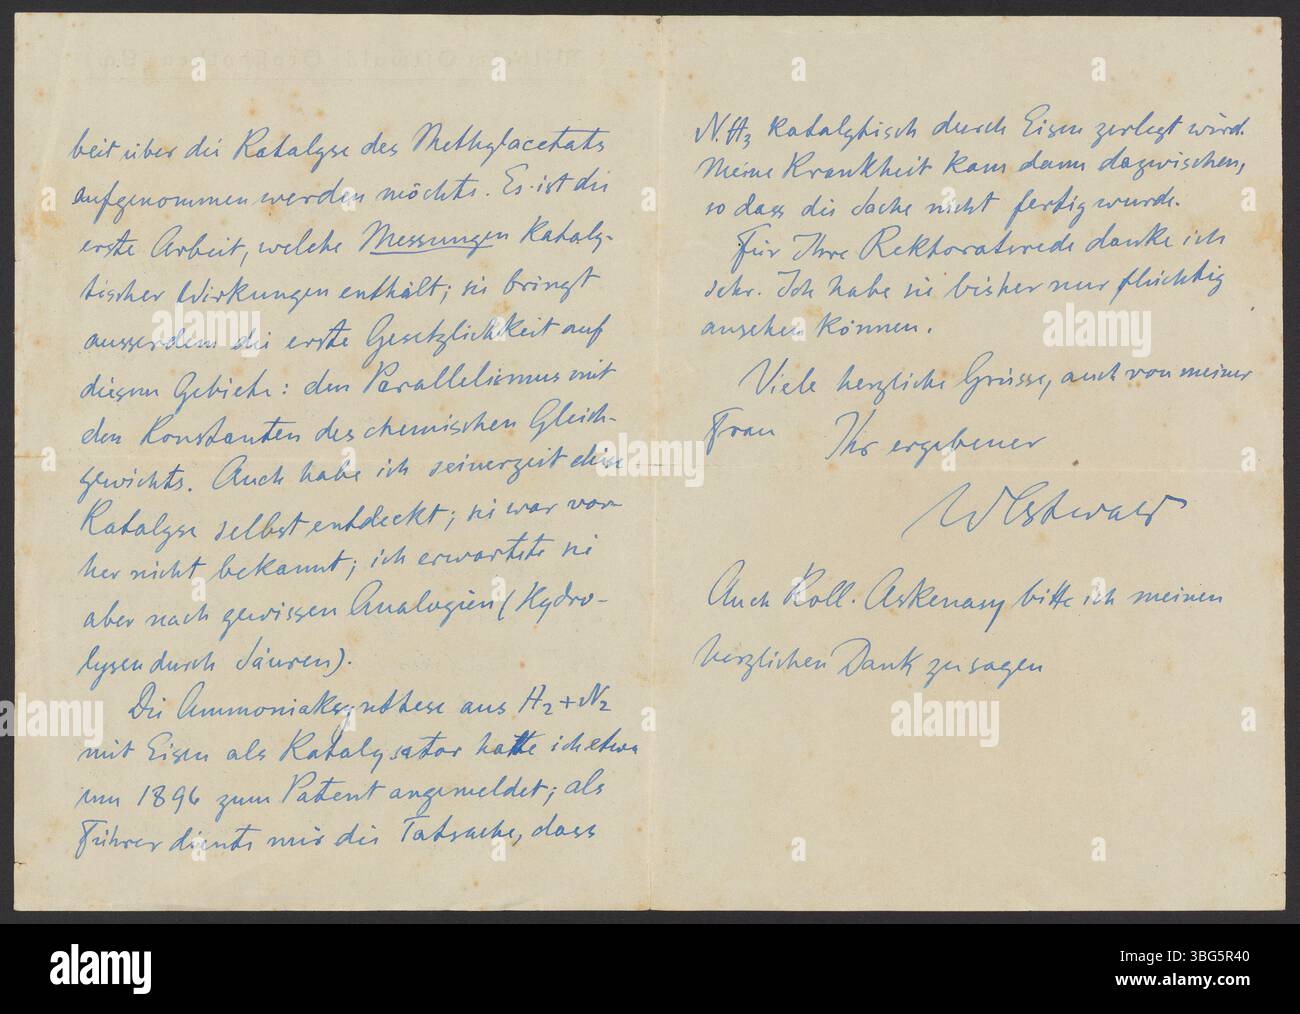 beit über die Katalyse des Methylacetats
aufgenommen werden möchte. Es ist die
erste Arbeit, welche Messungen kataly-
tischer Wirkungen enthält; sie bringt
ausserdem die erste Gesetzlichkeit auf
diesem Gebiete: den Parallelismus mit
den Konstanten des chemischen Gleich-
gewichts. Auch habe ich seinerzeit diese
Katalyse selbst entdeckt; sie war vor-
her nicht bekannt; ich erwartete sie
aber nach gewissen Analogien (Hydro-
lysen durch Säuren).
Die Ammoniaksynthese aus H₂+N₂
mit Eisen als Katalysator hatte ich etwa
um 1896 zum Patent angemeldet; als
Führer diente mir die Tatsache, dass
NH₃ katalytisch durch Eisen zerlegt wird.
Meine Krankheit kam dann dazwischen,
so dass die Sache nicht fertig wurde.
Für Ihre Rektoratsrede danke ich
sehr. Ich habe sie bisher nur flüchtig
ansehen können.
Viele herzliche Grüsse, auch von meiner
Frau Ihr ergebener
WOstwald
Auch Koll. Askenasy bitte ich meinen
herzlichen Dank zu sagen
alamy
a
alamy
Image ID: 3BG5R40
www.alamy.com